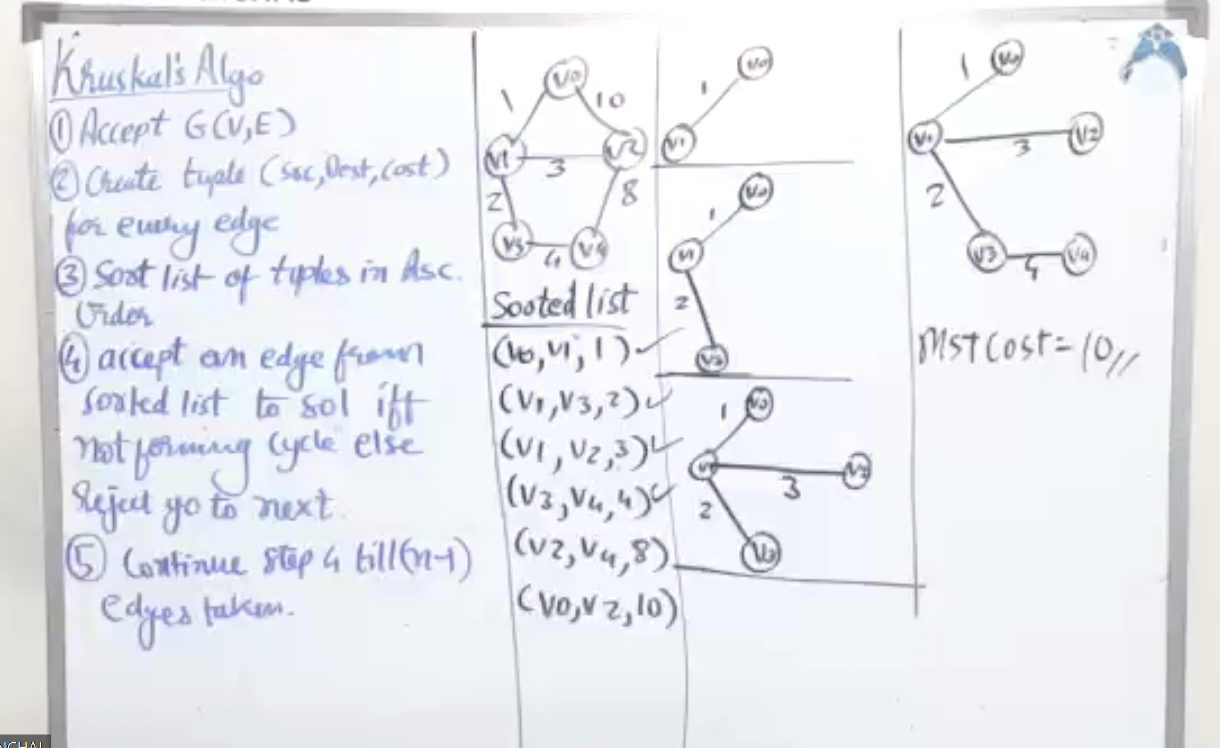 Kruskal's Algo
① Accept G(V,E)
② Create tuple (Src,Dest,Cost)
for every edge
③ Sort list of tuples in Asc.
Order
④ accept an edge from
sorted list to sol iff
not forming cycle else
Reject go to next.
⑤ Continue step 4 till (n-1)
edges taken.
V0
1
10
V1
3
V2
2
8
V3
4
V4
Sorted list
(V0,V1,1) ✓
(V1,V3,2) ✓
(V1,V2,3) ✓
(V3,V4,4) ✓
(V2,V4,8)
(V0,V2,10)
V0
1
V1
V0
1
V1
2
V3
V0
1
V1
3
V2
2
V3
V0
1
V1
3
V2
2
V3
4
V4
MST Cost = 10//